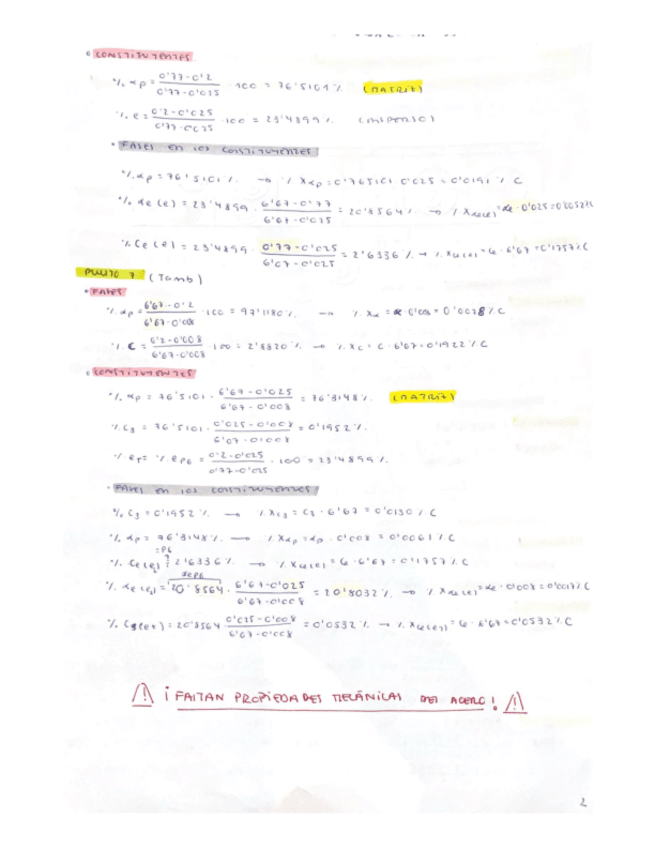 • CONSTITUYENTES
% αp = 0'77-0'2 / 0'77-0'025 · 100 = 76'5101 % (MATRIZ)
% e = 0'2-0'025 / 0'77-0'025 · 100 = 23'4899 % (DISPERSO)
• FASES EN LOS CONSTITUYENTES
% αp = 76'5101 % → % Xαp = 0'765101 · 0'025 = 0'0191 % C
% αe(e) = 23'4899 · 6'67-0'77 / 6'67-0'025 = 20'8564 % → % Xαe(e) = αe · 0'025 = 0'0052 % C
% Ce(e) = 23'4899 · 0'77-0'025 / 6'67-0'025 = 2'6336 % → % XCe(e) = Ce · 6'67 = 0'1757 % C
PUNTO 7 (Tamb)
• FASES
% αp = 6'67-0'2 / 6'67-0'008 · 100 = 97'1180 % → % Xα = α · 0'008 = 0'0078 % C
% C = 0'2-0'008 / 6'67-0'008 · 100 = 2'8820 % → % XC = C · 6'67 = 0'1922 % C
• CONSTITUYENTES
% αp = 76'5101 · 6'67-0'025 / 6'67-0'008 = 76'3148 % (MATRIZ)
% C3 = 76'5101 · 0'025-0'008 / 6'67-0'008 = 0'1952 %
% eT = % eP6 = 0'2-0'025 / 0'77-0'025 · 100 = 23'4899 %
• FASES EN LOS CONSTITUYENTES
% C3 = 0'1952 % → % XC3 = C3 · 6'67 = 0'0130 % C
% αp = 76'3148 % → % Xαp = αp · 0'008 = 0'0061 % C
= P6
% Ce(e) = 2'6336 % → % XCe(e) = Ce · 6'67 = 0'1757 % C
αeP6
% αe(e) = 20'8564 · 6'67-0'025 / 6'67-0'008 = 20'8032 % → % Xαe(e) = αe · 0'008 = 0'0017 % C
% C3(e) = 20'8564 · 0'025-0'008 / 6'67-0'008 = 0'0532 % → = 6'67 = 0'0532 % C
¡ FALTAN PROPIEDADES MECÁNICAS DEL ACERO !
2